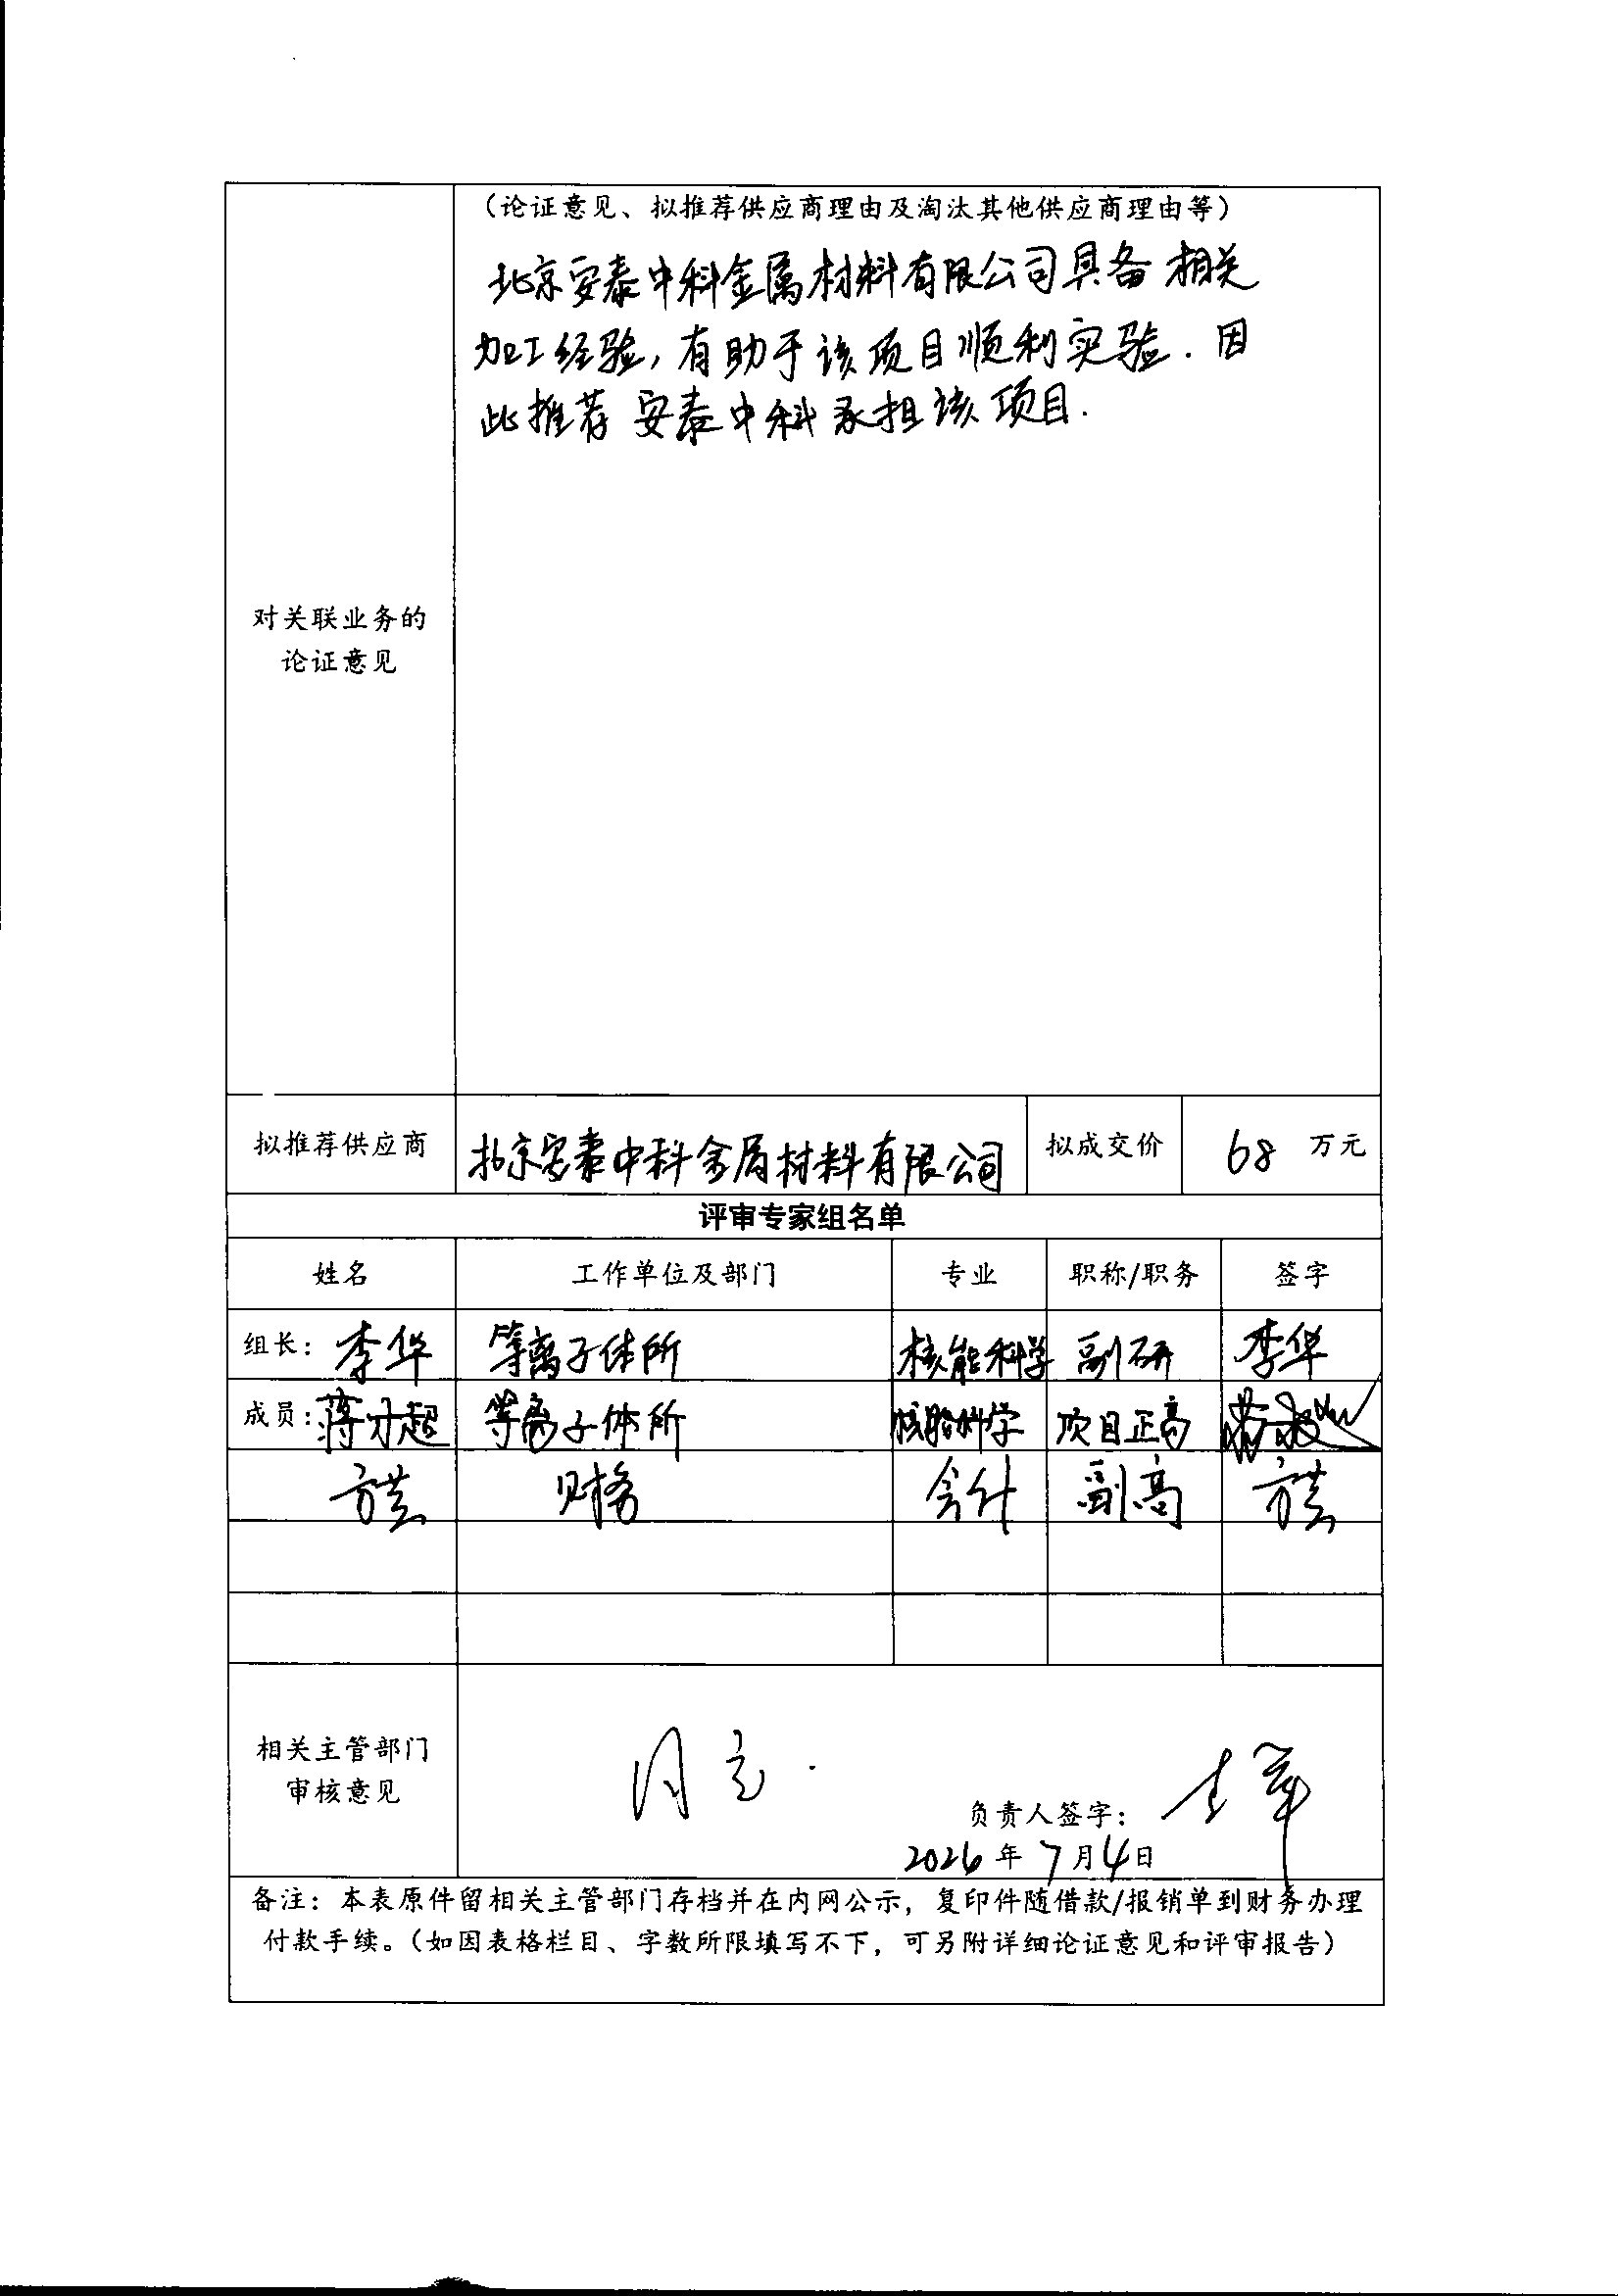 （论证意见、拟推荐供应商理由及淘汰其他供应商理由等）
北京安泰中科金属材料有限公司具备相关
加工经验，有助于该项目顺利实验．因
此推荐安泰中科承担该项目．
对关联业务的
论证意见
拟推荐供应商 北京安泰中科金属材料有限公司 拟成交价 68 万元
评审专家组名单
姓名 工作单位及部门 专业 职称/职务 签字
组长：李华 等离子体所 核能科学 副研 李华
成员：蒋力超 等离子体所 核能科学 项目正高
财务 会计 副高
相关主管部门
审核意见
同意．
负责人签字：
2026年7月4日
备注：本表原件留相关主管部门存档并在内网公示，复印件随借款/报销单到财务办理
付款手续。（如因表格栏目、字数所限填写不下，可另附详细论证意见和评审报告）